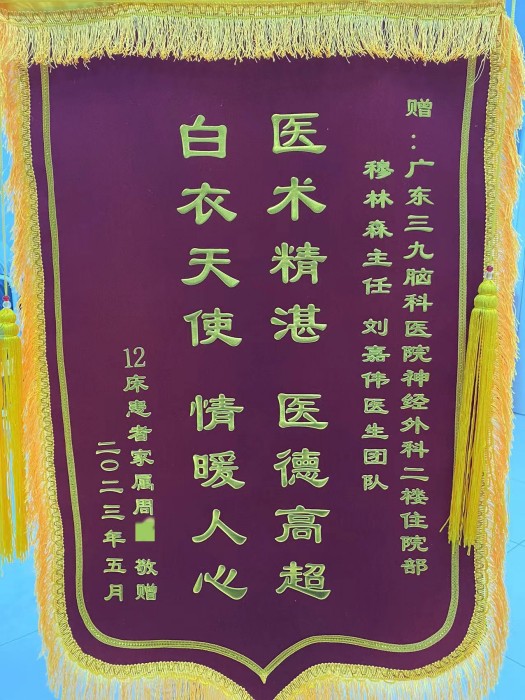 赠：广东三九脑科医院神经外科二楼住院部
穆林森主任 刘嘉伟医生团队
医术精湛 医德高超
白衣天使 情暖人心
12床患者家属周 敬赠
二〇二三年五月